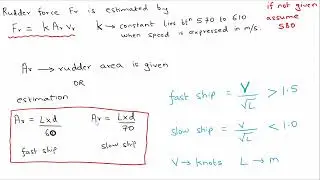 Rudder force Fr is estimated by
Fr = k Ar vr
k → constant lies btⁿ 570 to 610
when speed is expressed in m/s.
if not given
assume
580
Ar → rudder area is given
OR
estimation
Ar = Lxd / 60
fast ship
Ar = Lxd / 70
slow ship
fast ship = V / √L > 1.5
slow ship = V / √L < 1.0
V → knots L → m